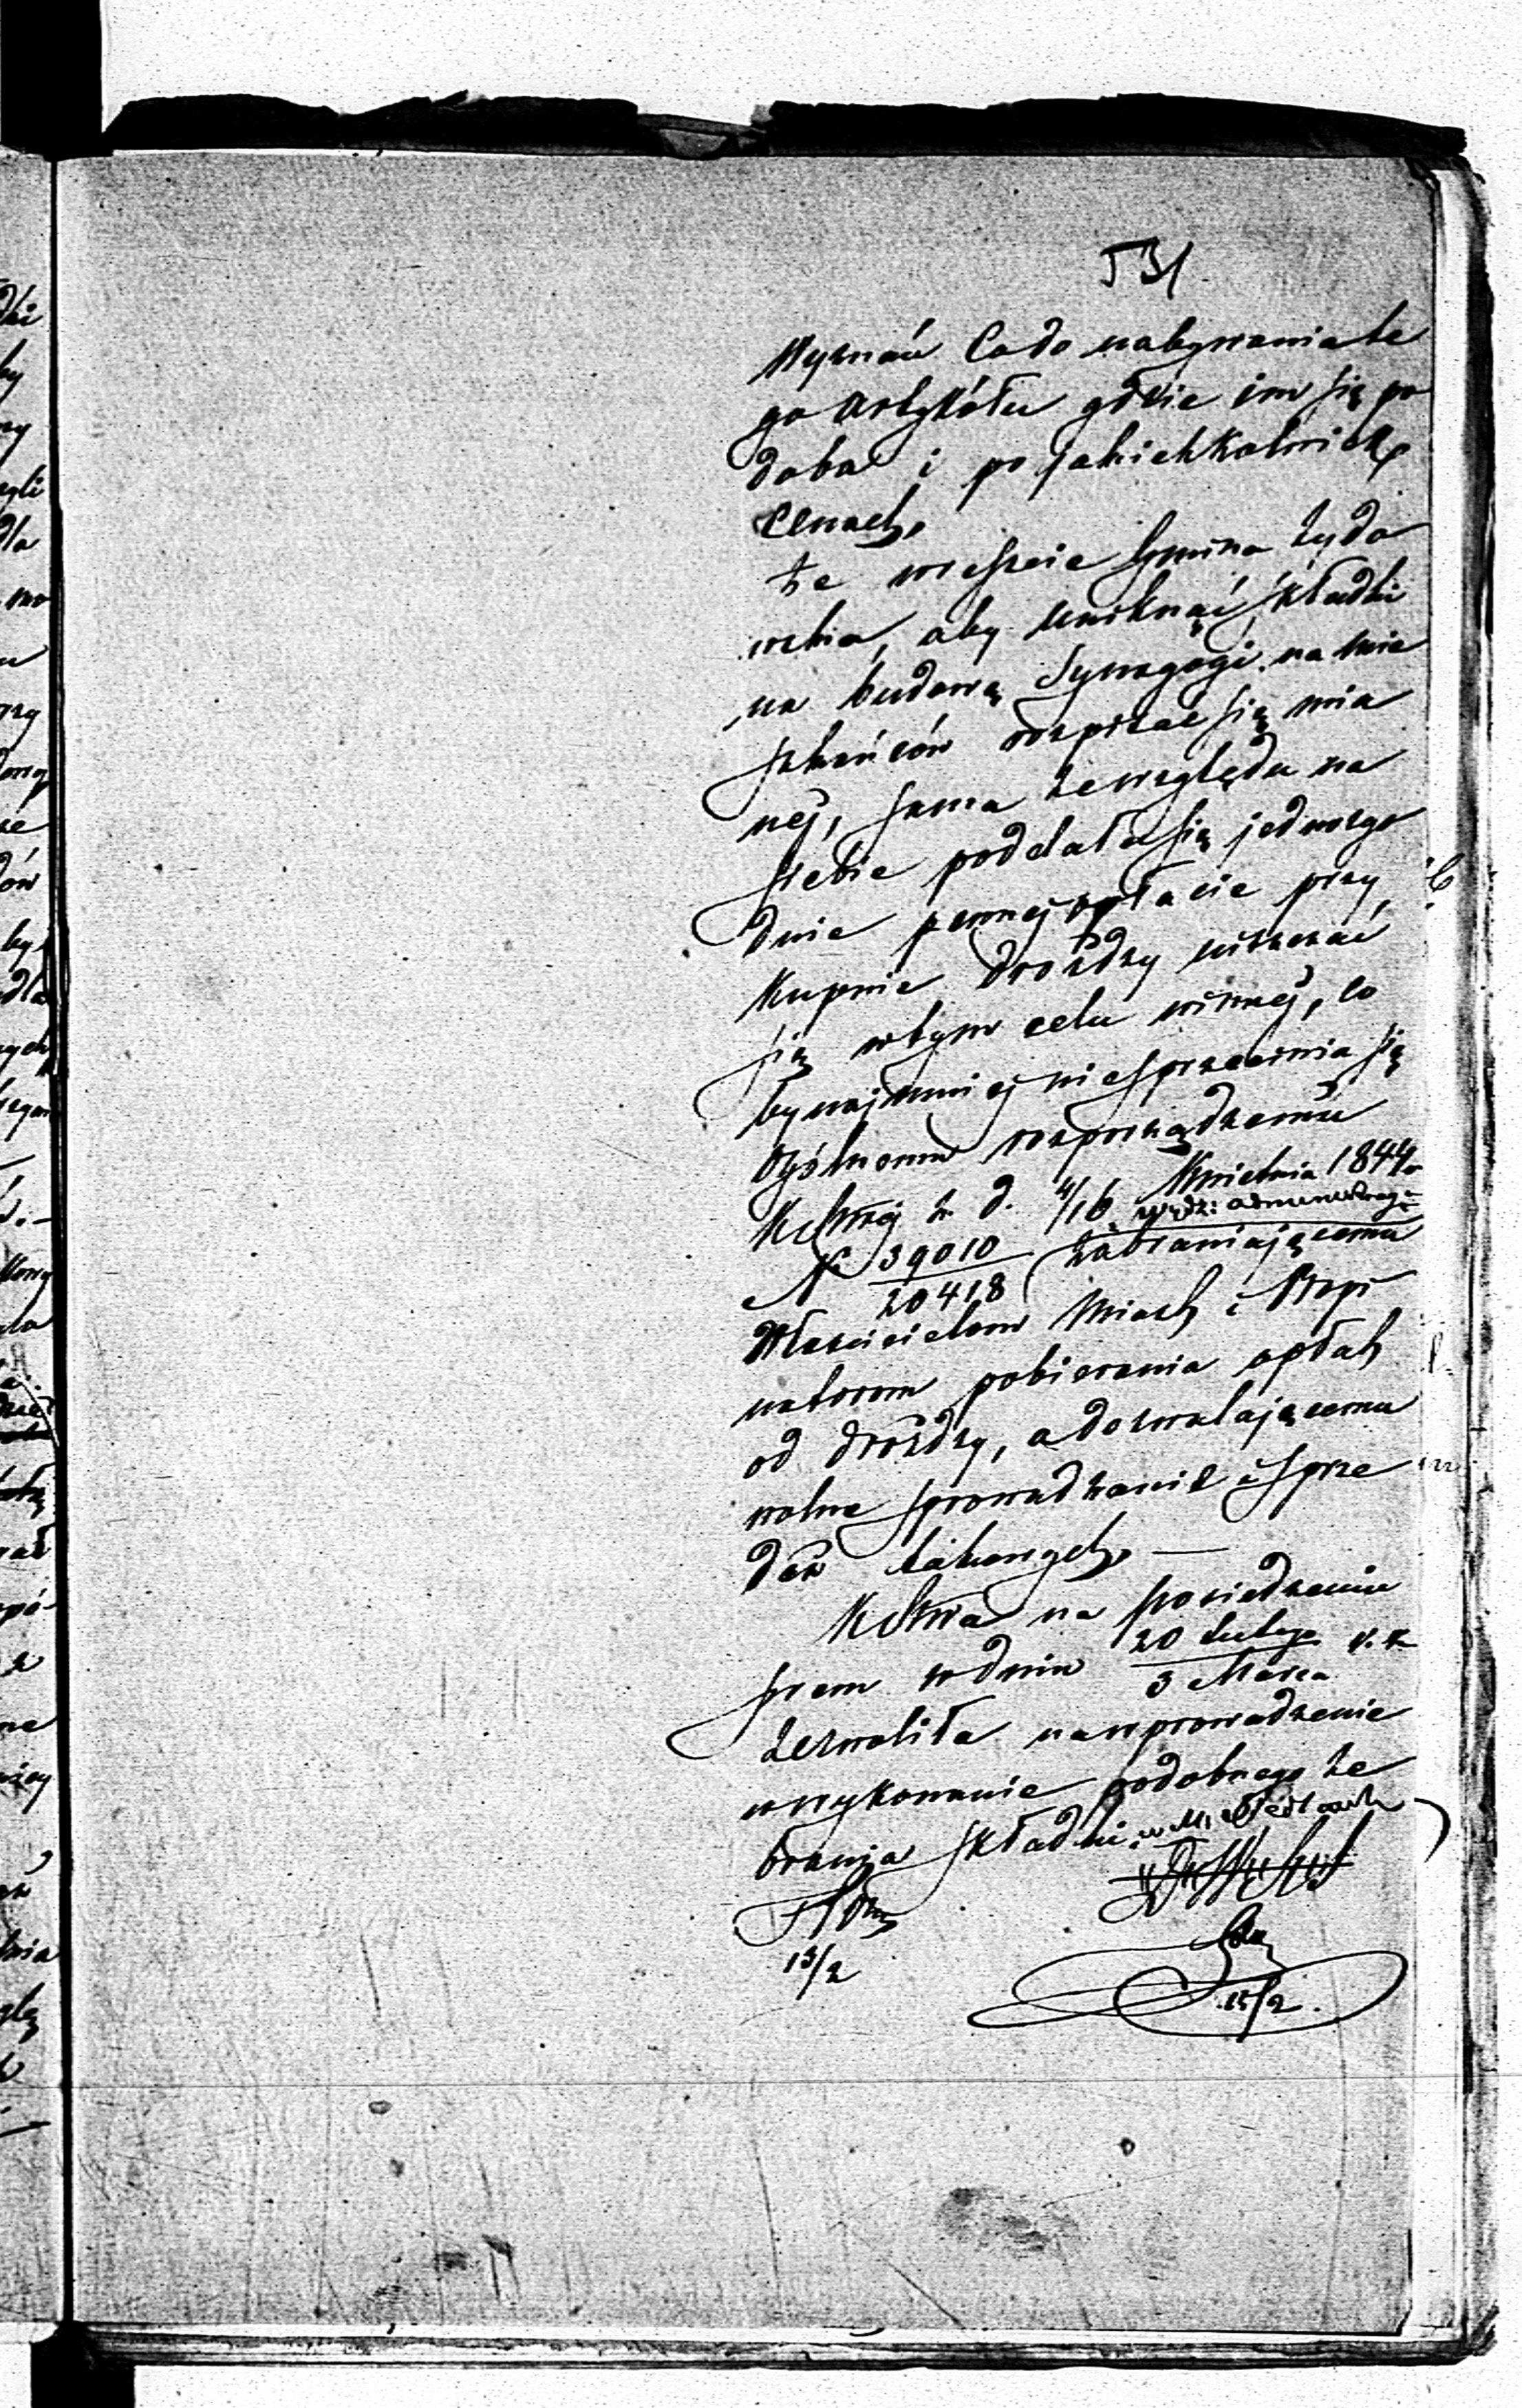 531
Wyznań Co do nabywania te
go Artykółu gdzie im się po
doba i po jakichkolwiek
Cenach.
że wreszcie Gmina żydo
wska, aby uniknąć składki
na budowę Synagogi na mie
szkańców rozpisać się mia
nej, sama ze względu na
siebie poddała się jednozgo
dnie pewnej opłacie przy
Kupnie drożdży uiszczać
się w tym celu winnej, co
bynajmniej niesprzeciwia się
Ogólnemu rozporządzeniu
z d. 4/16 Kwietnia 1844
N 39010/20418 zabraniającemu
Właścicielom Miast i Propi
natorom pobierania opłat
od drożdży, a dozwalającemu
wolne sprowadzanie i sprze
daż takowych. —
na posiedzeniu
swem w dniu 20 Lutego/3 Marca r. z
zezwoliła na wprowadzenie
w wykonanie podobnego ze
brania składki w M.
13/2
15/2